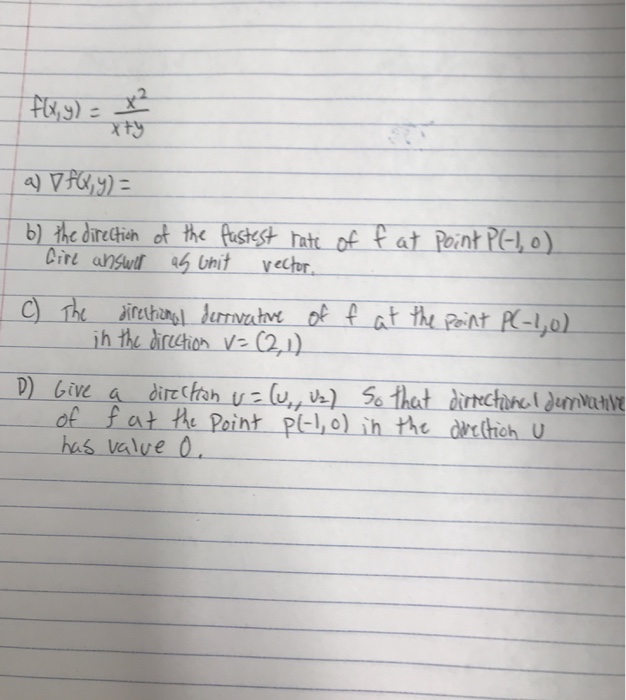 f(x,y) = x²/(x+y)
a) ∇f(x,y) =
b) the direction of the fastest rate of f at point P(-1,0)
Give answer as unit vector.
C) The directional derrivative of f at the point P(-1,0)
in the direction v= (2,1)
D) Give a direction u = (u₁, u₂) So that dirrectional derrivative
of f at the point p(-1,0) in the direction u
has value 0.